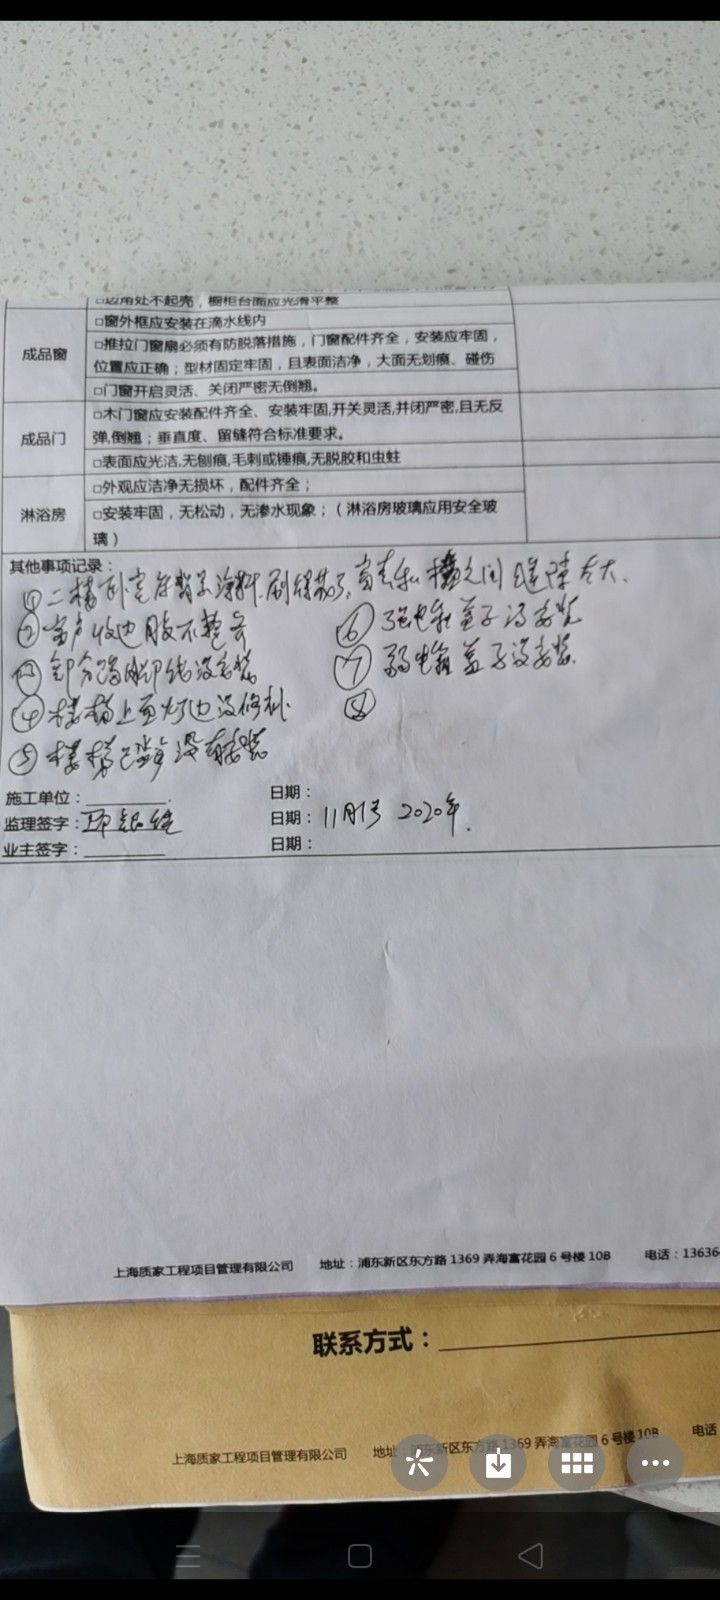 □边角处不起壳，橱柜台面应光滑平整
成品窗
□窗外框应安装在滴水线内
□推拉门窗扇必须有防脱落措施，门窗配件齐全，安装应牢固，
位置应正确；型材固定牢固，且表面洁净，大面无划痕、碰伤
□门窗开启灵活、关闭严密无倒翘。
成品门
□木门窗应安装配件齐全、安装牢固,开关灵活,并闭严密,且无反
弹,倒翘；垂直度、留缝符合标准要求。
□表面应光洁,无刨痕,毛刺或锤痕,无脱胶和虫蛀
淋浴房
□外观应洁净无损坏，配件齐全；
□安装牢固，无松动，无渗水现象；（淋浴房玻璃应用安全玻
璃）
其他事项记录：
① 二楼卧室 之间
② 收边胶不整齐
③ 部分 脚线没安装
④ 楼梯上面灯边没修补
⑤ 楼梯 没有安装
⑥ 强电箱盖子没安装
⑦ 弱电箱盖子没安装.
⑧
施工单位： 日期：
监理签字： 日期：11月1号 2020年.
业主签字： 日期：
上海质家工程项目管理有限公司 地址：浦东新区东方路 1369 弄海富花园 6 号楼 10B 电话：13636
联系方式：
上海质家工程项目管理有限公司 地址：浦东新区东方路 1369 弄海富花园 6 号楼 10B 电话